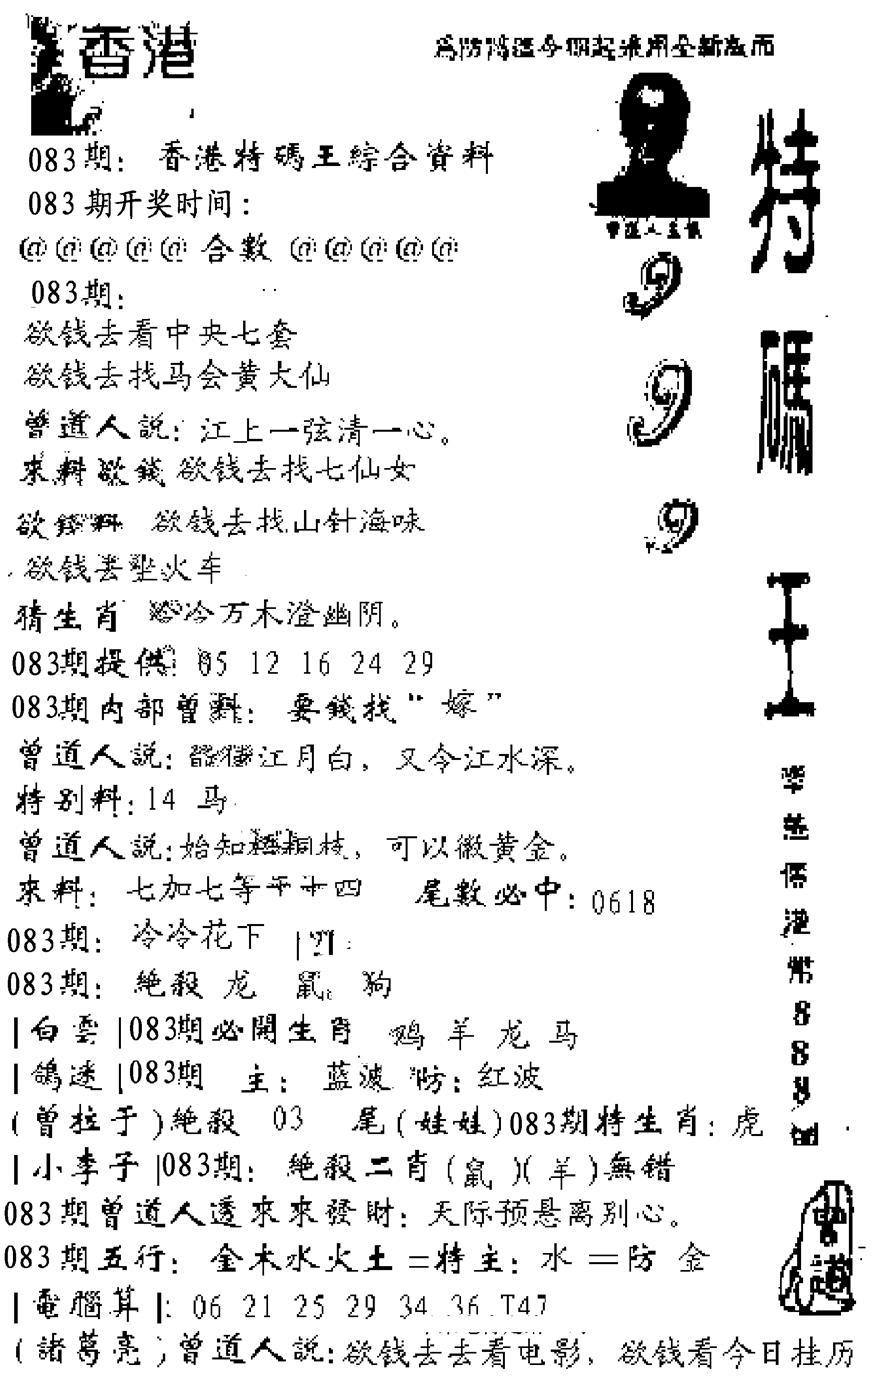 香港
為防濫今期起采用全新版面
曾道人主
特碼王
999
083期：香港特碼王綜合資料
083期开奖时间：
@@@@@合數@@@@@
083期：
欲钱去看中央七套
欲钱去找马会黄大仙
曾道人説：江上一弦清一心。
來料欲錢欲钱去找七仙女
欲錢料 欲钱去找山针海味
欲钱去坐火车
猜生肖 冷冷万木澄幽阴。
083期提供：05 12 16 24 29
083期内部曾料：要錢找“嫁”
曾道人説：江月白，又令江水深。
特别料：14 马
曾道人説：始知梧桐枝，可以徽黄金。
來料：七加七等于十四 尾數必中：0618
083期：冷冷花下
083期：絶殺 龙 鼠 狗
|白雲|083期必開生肖 鸡 羊 龙 马
|鴿迷|083期 主：蓝波 防：红波
(曾拉于)絶殺 03 尾(娃娃)083期特生肖：虎
|小李子|083期：絶殺二肖(鼠)(羊)無错
083期曾道人透來來發財：天际预悬离别心。
083期五行：金木水火土=特主：水=防 金
|電腦算|：06 21 25 29 34 36 T47
(諸葛亮)曾道人説：欲钱去去看电影，欲钱看今日挂历
港幣888
曾道